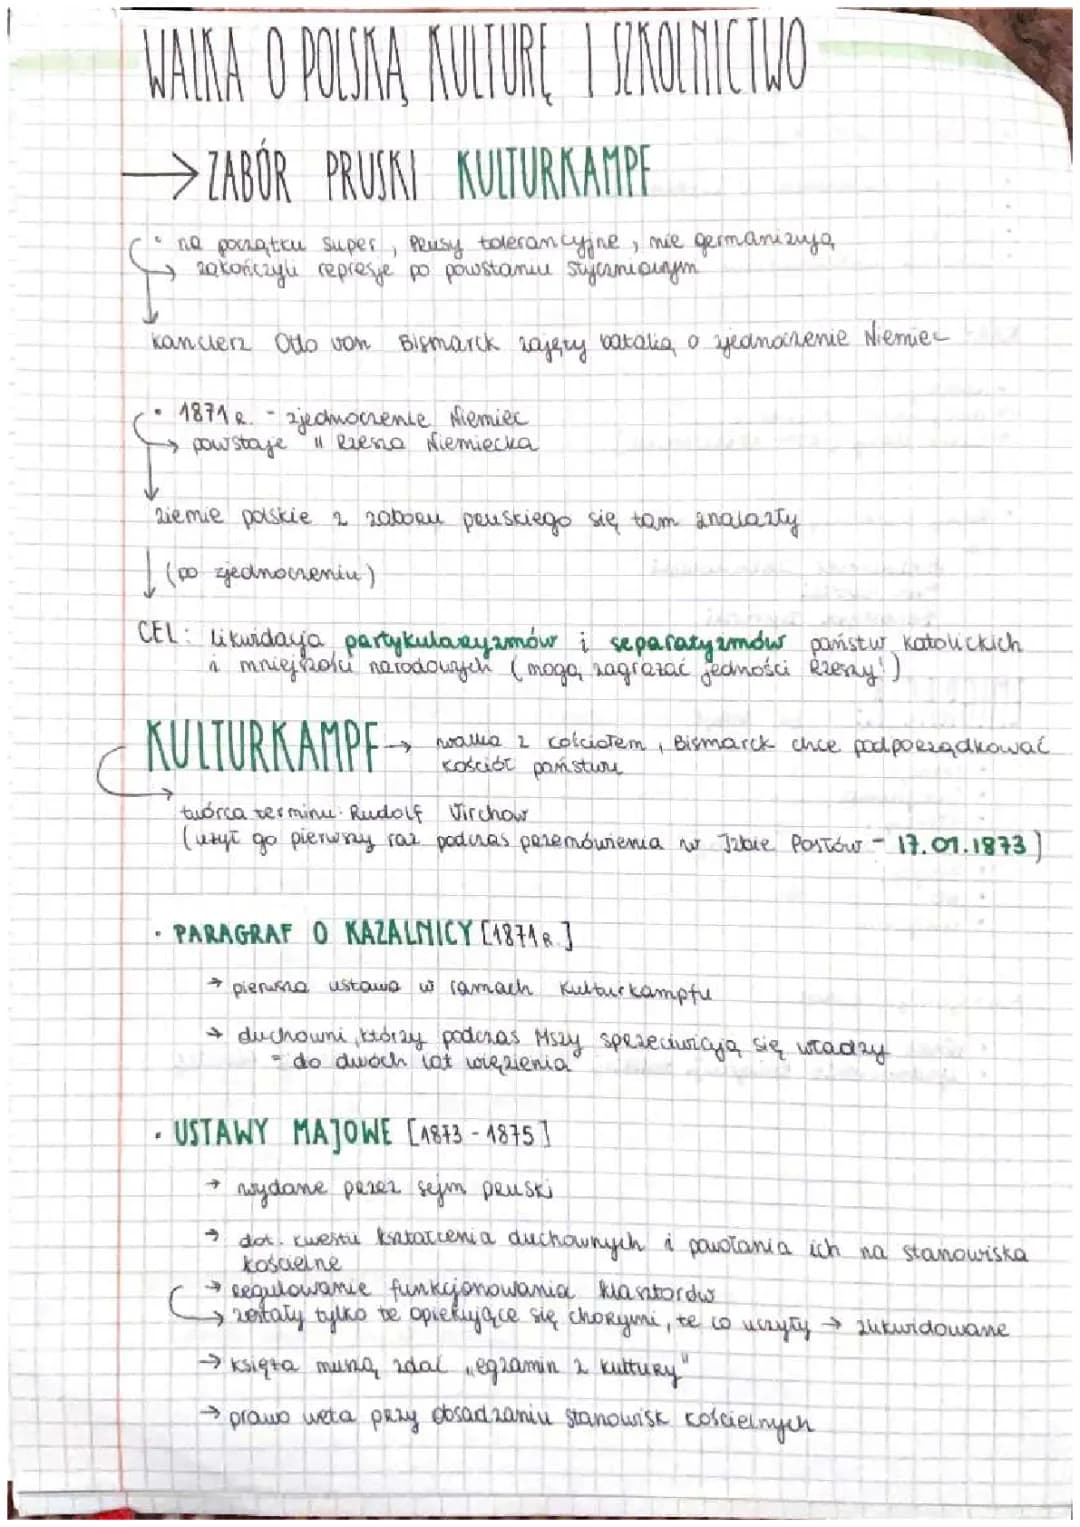 WALKA O POLSKĄ KULTURĘ I SZKOLNICTWO
→ ZABÓR PRUSKI KULTURKAMPF
• na początku super, Prusy tolerancyjne, nie germanizują
→ zakończyli represje po powstaniu styczniowym
kanclerz Otto von Bismarck zajęty batalią o zjednoczenie Niemiec
• 1871 R. - zjednoczenie Niemiec
→ powstaje II Rzesza Niemiecka
ziemie polskie z zaboru pruskiego się tam znalazły
↓ (po zjednoczeniu)
CEL: likwidacja partykularyzmów i separatyzmów państw katolickich
i mniejszości narodowych (mogą zagrażać jedności Rzeszy!)
KULTURKAMPF → walka z kościołem, Bismarck chce podporządkować
kościół państwu
twórca terminu: Rudolf Virchow
(użył go pierwszy raz podczas przemówienia w Izbie Posłów - 17.01.1873)
• PARAGRAF O KAZALNICY [1871 R.]
→ pierwsza ustawa w ramach Kulturkampfu
→ duchowni, którzy podczas Mszy sprzeciwiają się władzy
= do dwóch lat więzienia
• USTAWY MAJOWE [1873 - 1875]
→ wydane przez sejm pruski
→ dot. kwestii kształcenia duchownych i powołania ich na stanowiska
kościelne
→ regulowanie funkcjonowania klasztorów
→ zostały tylko te opiekujące się chorymi, te co uczyły → zlikwidowane
→ księża muszą zdać „egzamin z kultury"
→ prawo weta przy obsadzaniu stanowisk kościelnych